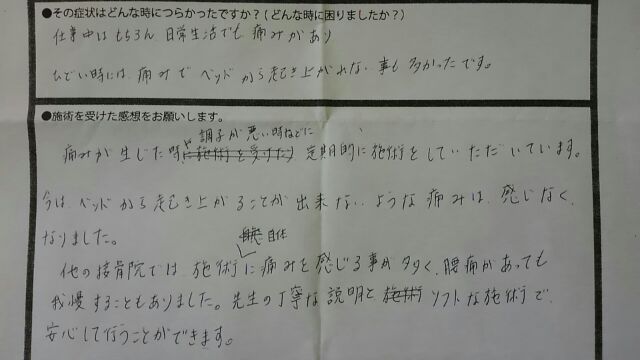 ●その症状はどんな時につらかったですか？（どんな時に困りましたか？）
仕事中はもちろん 日常生活でも 痛みがあり
ひどい時には、痛みで ベッドから起き上がれない 事も多かったです。
●施術を受けた感想をお願いします。
調子が悪い時などに
痛みが生じた時に施術を受けた 定期的に施術をしていただいています。
今は、ベッドから起き上がることが出来ないような痛みは、感じなく
なりました。
自体
他の接骨院では、施術に痛みを感じる事が多く、腰痛があっても
我慢することもありました。先生の丁寧な説明と 施術 ソフトな施術で、
安心して行うことができます。